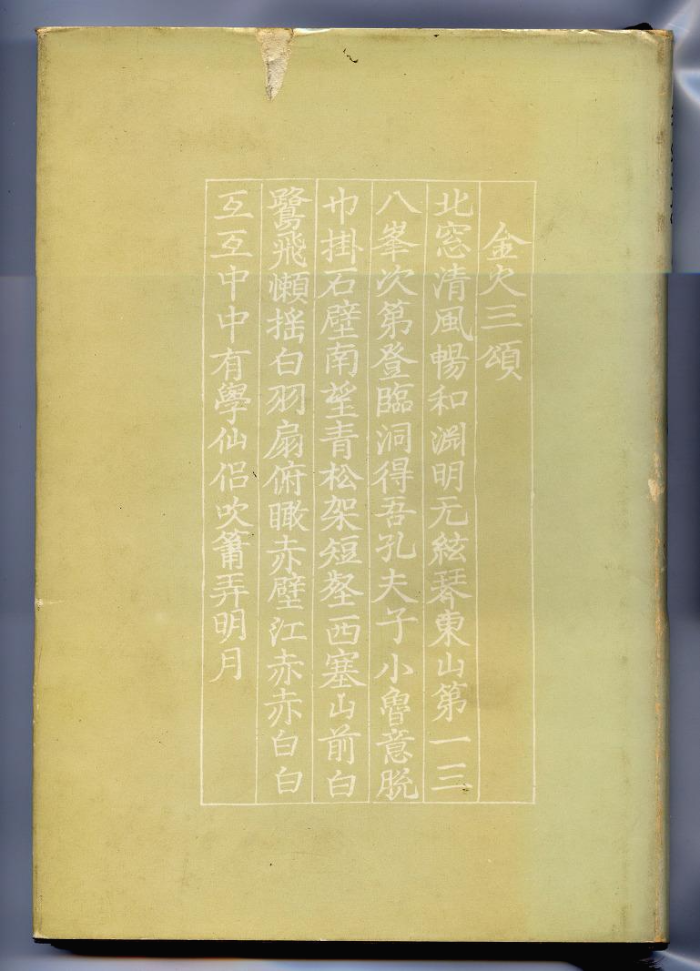 金火三頌
北窓清風暢和淵明无絃琴東山第一三
八峯次第登臨洞得吾孔夫子小魯意脫
巾掛石壁南望青松架短壑西塞山前白
鷺飛懶搖白羽扇俯瞰赤壁江赤赤白白
互互中中有學仙侶吹簫弄明月